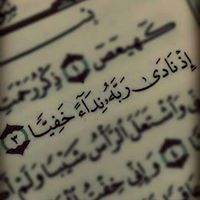 كٓهيعٓصٓ ١ ذِكْرُ رَحْمَتِ
إِذْ نَادَىٰ رَبَّهُۥ نِدَآءً خَفِيًّا ٣
وَٱشْتَعَلَ ٱلرَّأْسُ شَيْبًا وَلَمْ
٤ وَإِنِّى خِفْتُ